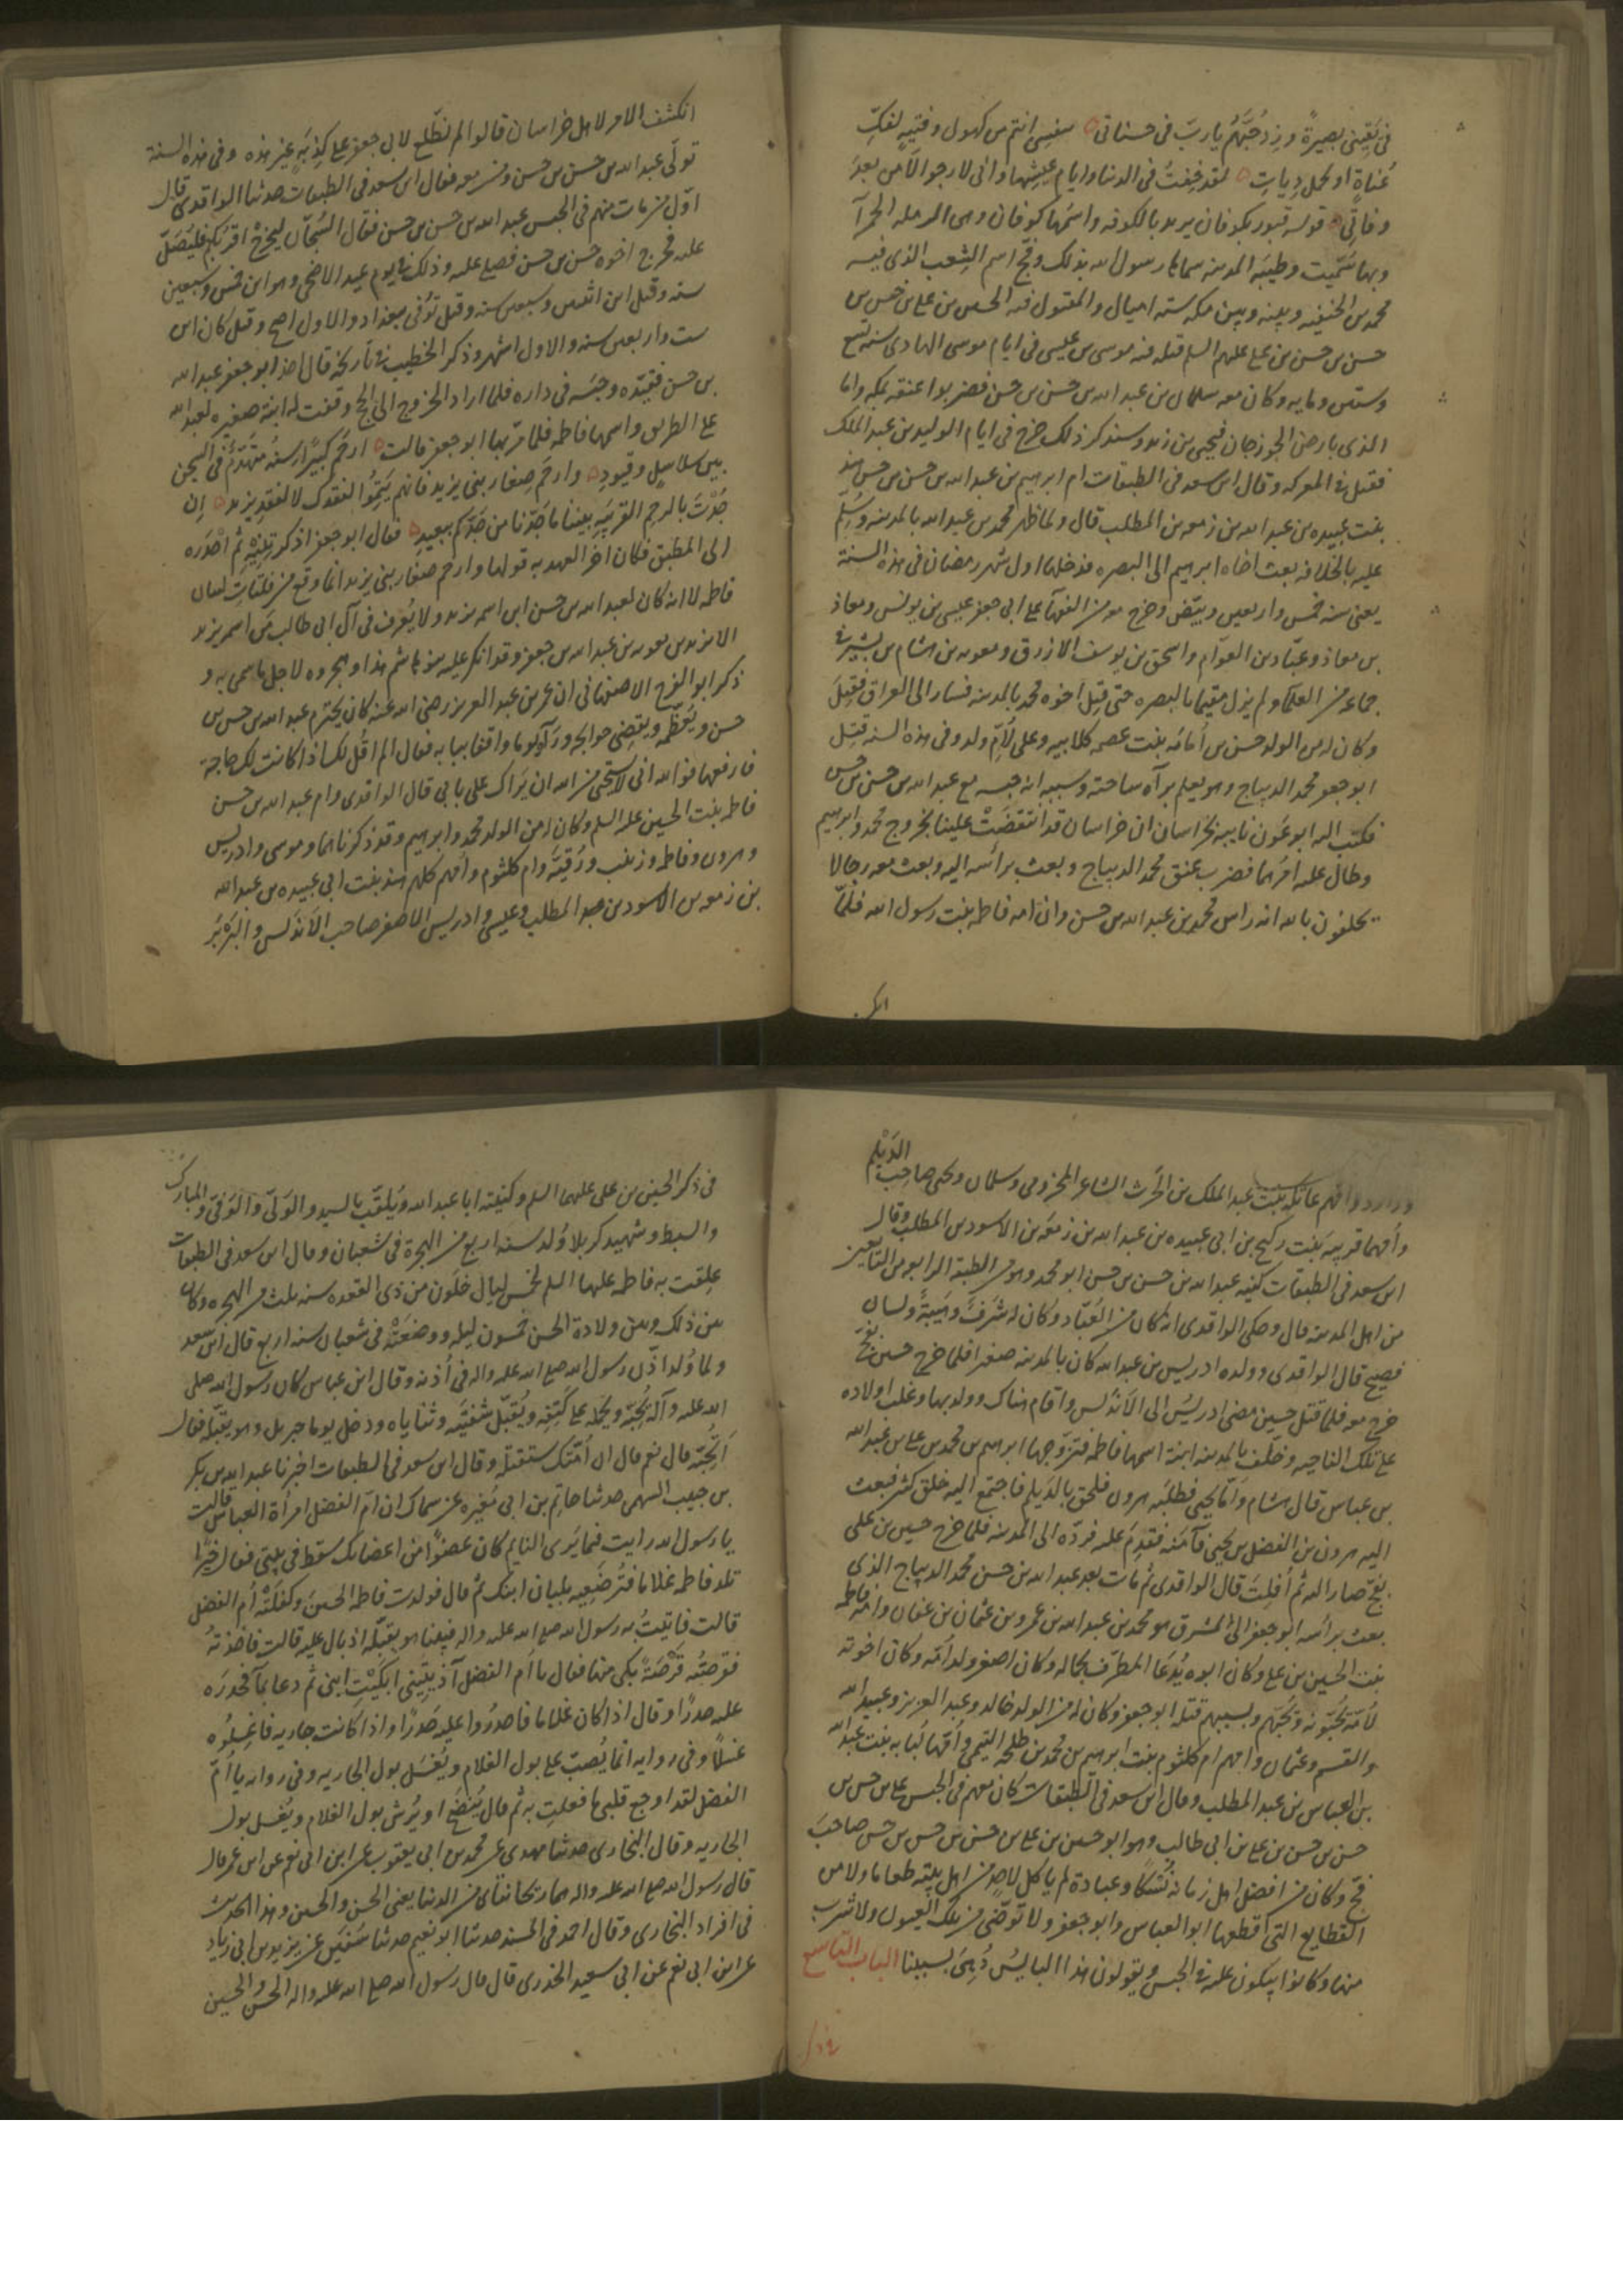 فى يقينى بصيرةً وزد حُبَّهُم يا ربّ فى حسناتى بنفسى انتم من كهول وفتيةٍ لفكّ
عُناةٍ او لحمل دِياتِ لقد خِفتُ فى الدنيا وايام عيشها وانى لارجو الأمن بعدَ
وفاتى قوله قبور بكوفان يريد بالكوفه واسمُها كوفان وهى الرمله الحمرآ
وبها سُمّيت وطيبَه المدينه سماها رسول الله بذلك وفخّ اسم الشِعب الذى فيه
محمد بن الحنفيه وبينه وبين مكه سته اميال والمقتول فيه الحسين بن على بن حسن بن
حسن بن حسن بن على عليهم السلم قتله فيه موسى بن عيسى فى ايام موسى الهادى سنه تسع
وستين ومايه وكان معه سلمان بن عبد الله بن حسن بن حسن فضربوا عنقه بمكه واما
الذى بارض الجوزجان فيحيى بن زيد وسنذكر ذلك خرج فى ايام الوليد بن عبد الملك
فقتل فى المعركه وقال ابن سعد فى الطبقات ام ابرهيم بن عبد الله بن حسن بن حسن هند
بنت عبيده بن عبد الله بن زمعه بن المطلب قال ولما ظهر محمد بن عبد الله بالمدينه وسُلم
عليه بالخلافه بعث اخاه ابرهيم الى البصره فدخلها اول شهر رمضان فى هذه السنة
يعنى سنه خمس واربعين وبيّض وخرج معه من الفقهآ على ابى جعفر عيسى بن يونس ومعاذ
بن معاذ وعبّاد بن العوّام واسحق بن يوسف الازرق ومعويه بن هشام بن بشير فى
جماعه من العلمآ ولم يزل مقيما بالبصره حتى قتِل اخوه محمد بالمدينه فسار الى العراق فقتِلَ
وكان له من الولد حسن بن أمامَه بنت عصمه كلابيه وعلى لأمّ ولد وفى هذه السنه قتِل
ابو جعفر محمد الديباج وهو يعلم برآة ساحته وسببه انه حبسه مع عبد الله بن حسن بن حسن
فكتب اليه ابو عَون نايبه بخراسان ان خراسان قد انتقضَتْ علينا بخروج محمد وابرهيم
وطال عليه امرُهما فضرب عنق محمد الديباج وبعث برأسه اليه وبعث معه رجالا
يحلفون بالله انه راس محمد بن عبد الله بن حسن وان امه فاطمه بنت رسول الله فلمّا
انكـ
انكشف الامر لاهل خراسان قالوا الم نطّلع لابى جعفر على كذِبَةٍ غير هذه وفى هذه السنة
توفّى عبد الله بن حسن بن حسن ومن معه فقال ابن سعد فى الطبقات حدثنا الواقدى قال
اوّل من مات منهم فى الحبس عبد الله بن حسن بن حسن فقال السّجّان ليخرجْ اقربكم فليُصَلّ
عليه فخرج اخوه حسن بن حسن فصلى عليه وذلك فى يوم عيد الاضحى وهو ابن خمس وسبعين
سنه وقيل ابن اثنتين وسبعين سنه وقيل توُفى ببغداد والاول اصح وقيل كان ابن
ست واربعين سنه والاول اشهر وذكر الخطيب فى تاريخه قال اخذ ابو جعفر عبد الله
بن حسن فقيّده وحبسَه فى داره فلما اراد الخروج الى الحج وقفت له ابنة صغيره لعبد الله
على الطريق واسمها فاطمه فلما مرّ بها ابو جعفر قالت ارحَم كبيرًا سنُّه متهَدّمٌ فى السجن
بين سلاسلٍ وقيودِ وارحَم صِغار بنى يزيد فانهم يَتِمُوا لفقدك لا لفقدِ يزيد ان
جُدْتَ بالرحم القريبَه بيننا ما جَدّنا من جَدّكم ببعيدِ فقال ابو جعفر اذكرتِنِيْهِ ثم احْدَره
الى المطبق فكان اخر العهد به قولها وارحم صغار بنى يزيد انما وقع من فلتاتِ لسان
فاطمه لا انه كان لعبد الله بن حسن ابن اسمه يزيد ولا يُعرف فى آل ابى طالب مَن اسمه يزيد
الا يزيد بن معويه بن عبد الله بن جعفر وقد انكر عليه بنو هاشم هذا وهجروه لاجل ما سمى به و
ذكر ابو الفرج الاصفهانى ان عمر بن عبد العزيز رضى الله عنه كان يحترم عبد الله بن حسن بن
حسن ويُعَظّمه ويقضِى حوايجه ورَآه يوما واقفا ببابه فقال الم اقُل لك اذا كانت لك حاجة
فارفعها فوالله انى لاستحيى من الله ان يَراك على بابى قال الواقدى وام عبد الله بن حسن
فاطمه بنت الحسين عليه السلم وكان له من الولد محمد وابرهيم وقد ذكرناهما وموسى وادريس
وهرون وفاطمه وزينب ورُقيَّه وام كلثوم وامهم كلهم هند بنت ابى عبيده بن عبد الله
بن زمعه بن الاسود بن عبد المطلب وعيسى وادريس الاصغر صاحب الاندلس والبَرْبَر
الدَيْلم
وداود وامهم عاتكه بنت عبد الملك بن الحَرث الشاعر المخزومى وسلمان ويحيى صاحب
وأمهما قريبه بنت ركيح بن ابى عبيده بن عبد الله بن زمعَه بن الاسود بن المطلب وقال
ابن سعد فى الطبقات كنيه عبد الله بن حسن بن حسن ابو محمد وهو من الطبقه الرابعه من التابعين
من اهل المدينه قال وحكى الواقدى انه كان من العُبّاد وكان له شَرفٌ وهَيبَةٌ ولسان
فصيح قال الواقدى وولده ادريس بن عبد الله كان بالمدينه صغيرا فلما خرج حسين بفخّ
خرج معه فلما قتل حسين مضى ادريسُ الى الاندلس واقام هناك وولد بها وغلب اولاده
على تلك الناحيه وخلّف بالمدينه ابنة اسمها فاطمه فتزوّجها ابرهيم بن محمد بن على بن عبد الله
بن عباس قال هشام وامّا يحيى فطلبَه هرون فلحق بالدَيلم فاجتمع اليه خلق كثير فبعث
اليه هرون بن الفضل بن يحيى فآمَنه فقدِمَ عليه فردّه الى المدينه فلما خرج حسين بن على
بفخ صار اليه ثم أفلِتَ قال الواقدى ثم مات بعد عبد الله بن حسن محمد الديباج الذى
بعث برأسه ابو جعفر الى المشرق هو محمد بن عبد الله بن عمرو بن عثمان بن عفان وامه فاطمه
بنت الحسين بن على وكان ابوه يُدعَا المطرّف لجماله وكان اصغر ولد أمّه وكان اخوته
لأمّه يحبّونه ويُحبّهم وبسببهم قتله ابو جعفر وكان له من الولد خالد وعبد العزيز وعبيد الله
والقسم وعثمان وامهم ام كلثوم بنت ابرهيم بن محمد بن طلحه التيمى وأمّها لُبابه بنت عبد الله
بن العباس بن عبد المطلب وقال ابن سعد فى الطبقات كان معهم فى الحبس على بن حسن بن
حسن بن حسن بن على بن ابى طالب وهو ابو حسين بن على بن حسن بن حسن بن حسن صاحبَ
فخّ وكان من افضل اهل زمانه نُسُكًا وعبادة لم ياكل لاحدٍ من اهل بيته طعاما ولا من
القطايع التى اقطعها ابو العباس وابو جعفر ولا توضّى من تلك العيون ولا شرب
منها وكانوا يبكون عليه فى الحبس ويقولون هذا البايسُ دُهِىَ بسببنا الباب التاسع
فى ذكر الحسين بن على عليهما السلم وكنيته ابا عبد الله ويُلقّب بالسيد والوَلىّ والوَفىّ والمبارك
والسبط وشهيد كربلا وُلد سنه اربع من الهجرة فى شعبان وقال ابن سعد فى الطبقات
علِقت به فاطمه عليها السلم لخمس ليالٍ خلَون من ذى القعده سنه ثلث من الهجره وكان
بين ذلك وبين ولادة الحسن خمسون ليله ووضعَتْه فى شعبان سنه اربع قال ابن سعد
ولما وُلد اذّن رسول الله صلى الله عليه واله فى أذنه وقال ابن عباس كان رسول الله صلى
الله عليه وآله يُحِبّه ويحمله على كتِفِه ويُقبّل شفتيَه وثناياه ودخل يوما جبريل وهو يقبّله فقال
أتُحِبّه قال نعم قال ان أمّتك ستقتله وقال ابن سعد فى الطبقات اخبرنا عبد الله بن بكر
بن حبيب السهمى حدثنا حاتم بن ابى صَغيره عن سماك ان امّ الفضل امرأة العباس قالت
يا رسول الله رايت فيما يَرى النايم كان عضوًا من اعضائك سقط فى بيتى فقال خيرًا
تلد فاطمه غلاما فتُرضَعِيه بلبان ابنك ثم قال فولدت فاطمه الحسينَ وكفَلتْه أم الفضل
قالت فاتيتُ به رسول الله صلى الله عليه واله فبينا هو يقبّله اذ بال عليه قالت فاخذتُه
فقرَصتُه قَرْصَةً بكى منها فقال يا ام الفضل آذيتِينى ابكَيْتِ ابنى ثم دعا بمآ فحدَرَه
عليه حدرًا وقال اذا كان غلاما فاحدُروا عليه حَدرًا واذا كانت جاريه فاغسِلُوه
غسلًا وفى روايه انما يُصبّ على بول الغلام ويُغسَل بول الجاريه وفى روايه يا أمّ
الفضل لقد اوجع قلبى ما فعلتِ به ثم قال يُنضَح او يُرَش بول الغلام ويُغسل بول
الجاريه وقال البخارى حدثنا مهدى عن محمد بن ابى يعقوب عن ابن ابى نعم عن ابن عمر قال
قال رسول الله صلى الله عليه واله هما ريحانتاى من الدنيا يعنى الحسن والحسين وهذا الحديث
فى افراد البخارى وقال احمد فى المسند حدثنا ابو نعيم حدثنا سُفيٰن عن يزيد بن ابى زياد
عن ابن ابى نعم عن ابى سعيد الخدرى قال قال رسول الله صلى الله عليه واله الحسن والحسين